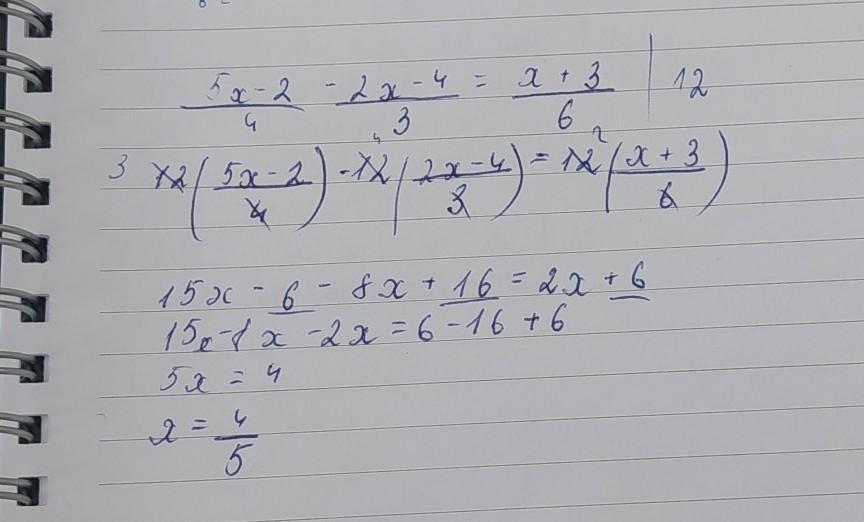 5x-2/4 - 2x-4/3 = x+3/6 | 12
3 12(5x-2/4) - 4 12(2x-4/3) = 2 12(x+3/6)
15x - 6 - 8x + 16 = 2x + 6
15x - 8x - 2x = 6 - 16 + 6
5x = 4
x = 4/5